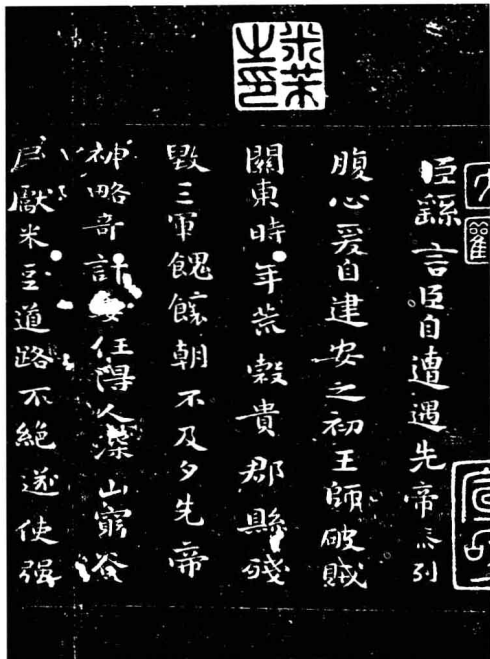 米芾之印
臣繇言臣自遭遇先帝忝列
腹心爰自建安之初王師破賊
關東時年荒榖貴郡縣殘
毀三軍餽饟朝不及夕先帝
神略奇計委任得人深山窮谷
民獻米豆道路不絕遂使强